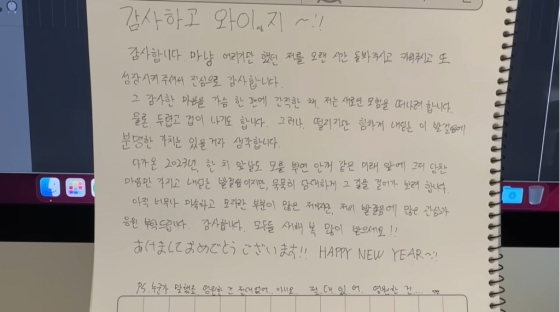 감사하고 와이지 ~!!
감사합니다. 마냥 어리기만 했던 저를 오랜 시간 돌봐주시고 키워주시고 또
성장시켜 주셔서 진심으로 감사합니다.
그 감사한 마음을 가슴 한 켠에 간직한 채, 저는 새로운 모험을 떠나려 합니다.
물론 두렵고 겁이 나기도 합니다. 그러나, 떨리지만 힘차게 내딛는 이 발걸음에
분명한 가치는 있을 거라 생각합니다.
다가올 2023년, 한 치 앞날도 모를 밤안개 같은 미래 앞에 그저 당찬
마음만 가지고 내딛는 발걸음이지만, 묵묵히 담대하게 그 길을 걸어가 보려 합니다.
아직 너무나 미숙하고 모자란 부분이 많은 저지만, 저의 발걸음에 많은 관심과
응원 부탁드립니다. 감사합니다. 모두들 새해 복 많이 받으세요!!
あけましておめでとうございます!! HAPPY NEW YEAR~!!
PS. 누군가 말했죠 영원한 건